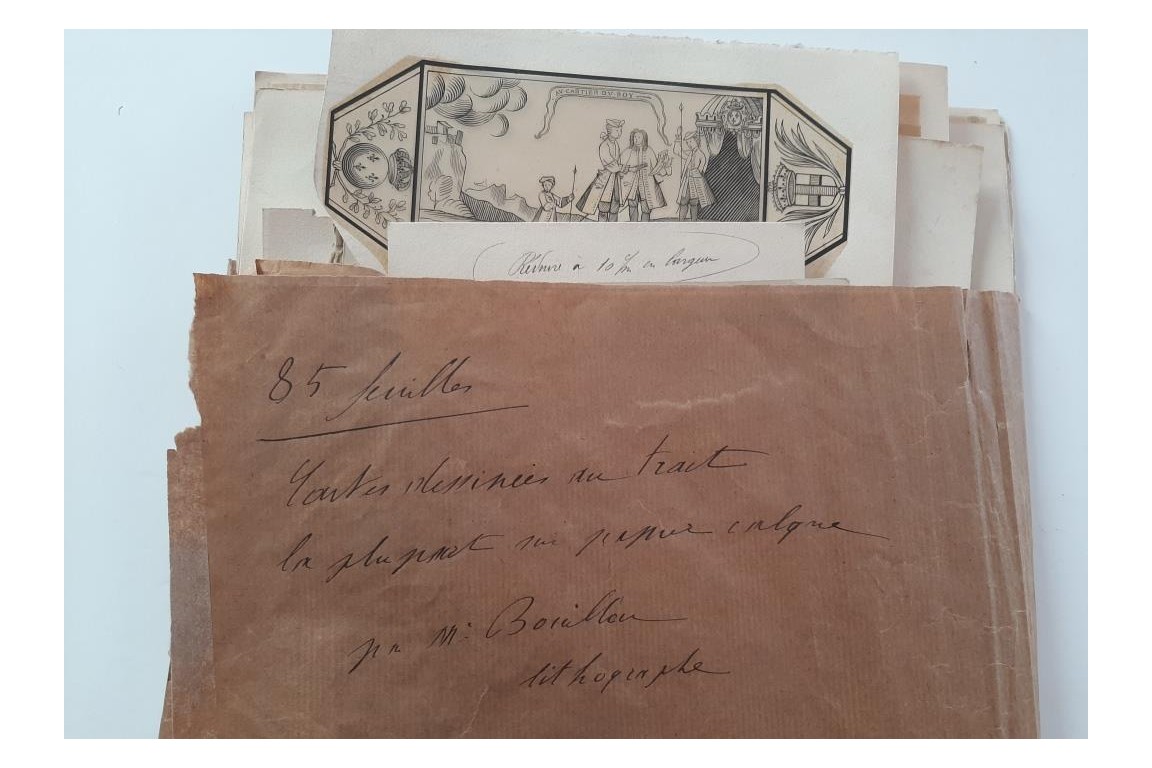 AV CARTIER DV ROY
Réduire à 10 c/m en largeur
85 feuilles
Cartes dessinées au trait
la plupart sur papier calque
par Mr Bouillon
lithographe